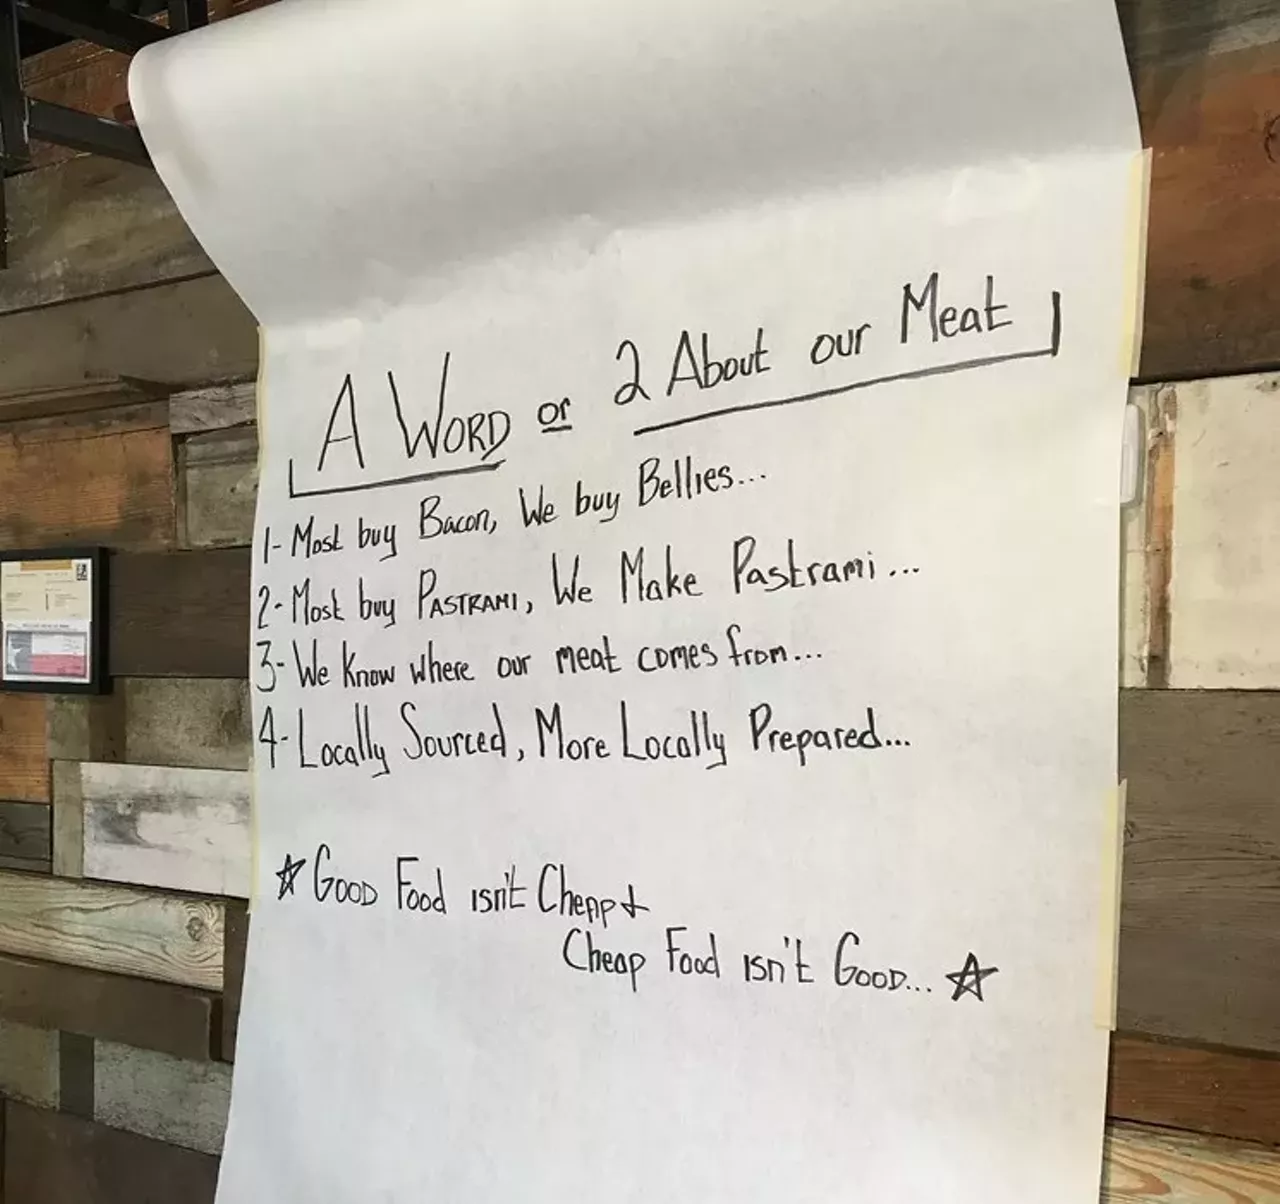 A WORD or 2 About our Meat
1- Most buy Bacon, We buy Bellies...
2- Most buy PASTRAMI, We Make Pastrami...
3- We Know where our meat comes from...
4- Locally Sourced, More Locally Prepared...
☆ GOOD Food isn't Cheap +
Cheap Food isn't GOOD... ☆